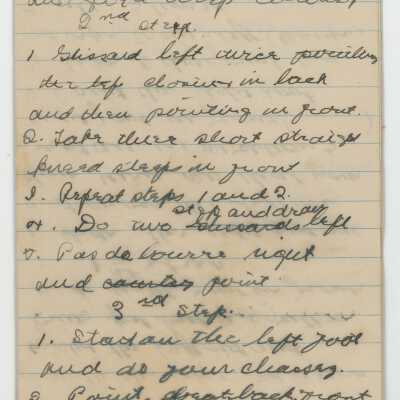 2nd step.
1 Glissard left twice pointing
the left closing in back
and then pointing in front.
2. Take three short straight
kneed steps in front
3. Repeat steps 1 and 2.
step and draw
4. Do two left
5. Pas de bourre right
and point.
3rd Step.
1. Stand on the left foot
and do your chasing.
2. Point, back, front